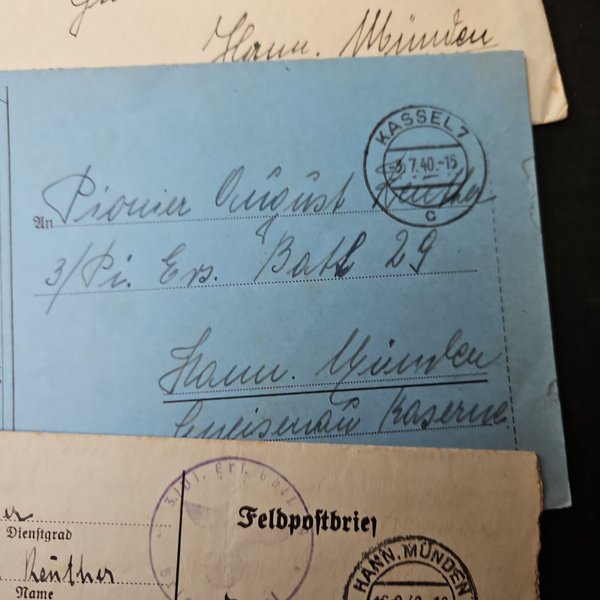 Hann. Münden
KASSEL 7
-3.7.40.-15
c
An Pionier August Reuther
3/Pi. Ers. Batl. 29
Hann. Münden
Gneisenau Kaserne
Feldpostbrief
Dienstgrad
Reuther
Name
HANN. MÜNDEN